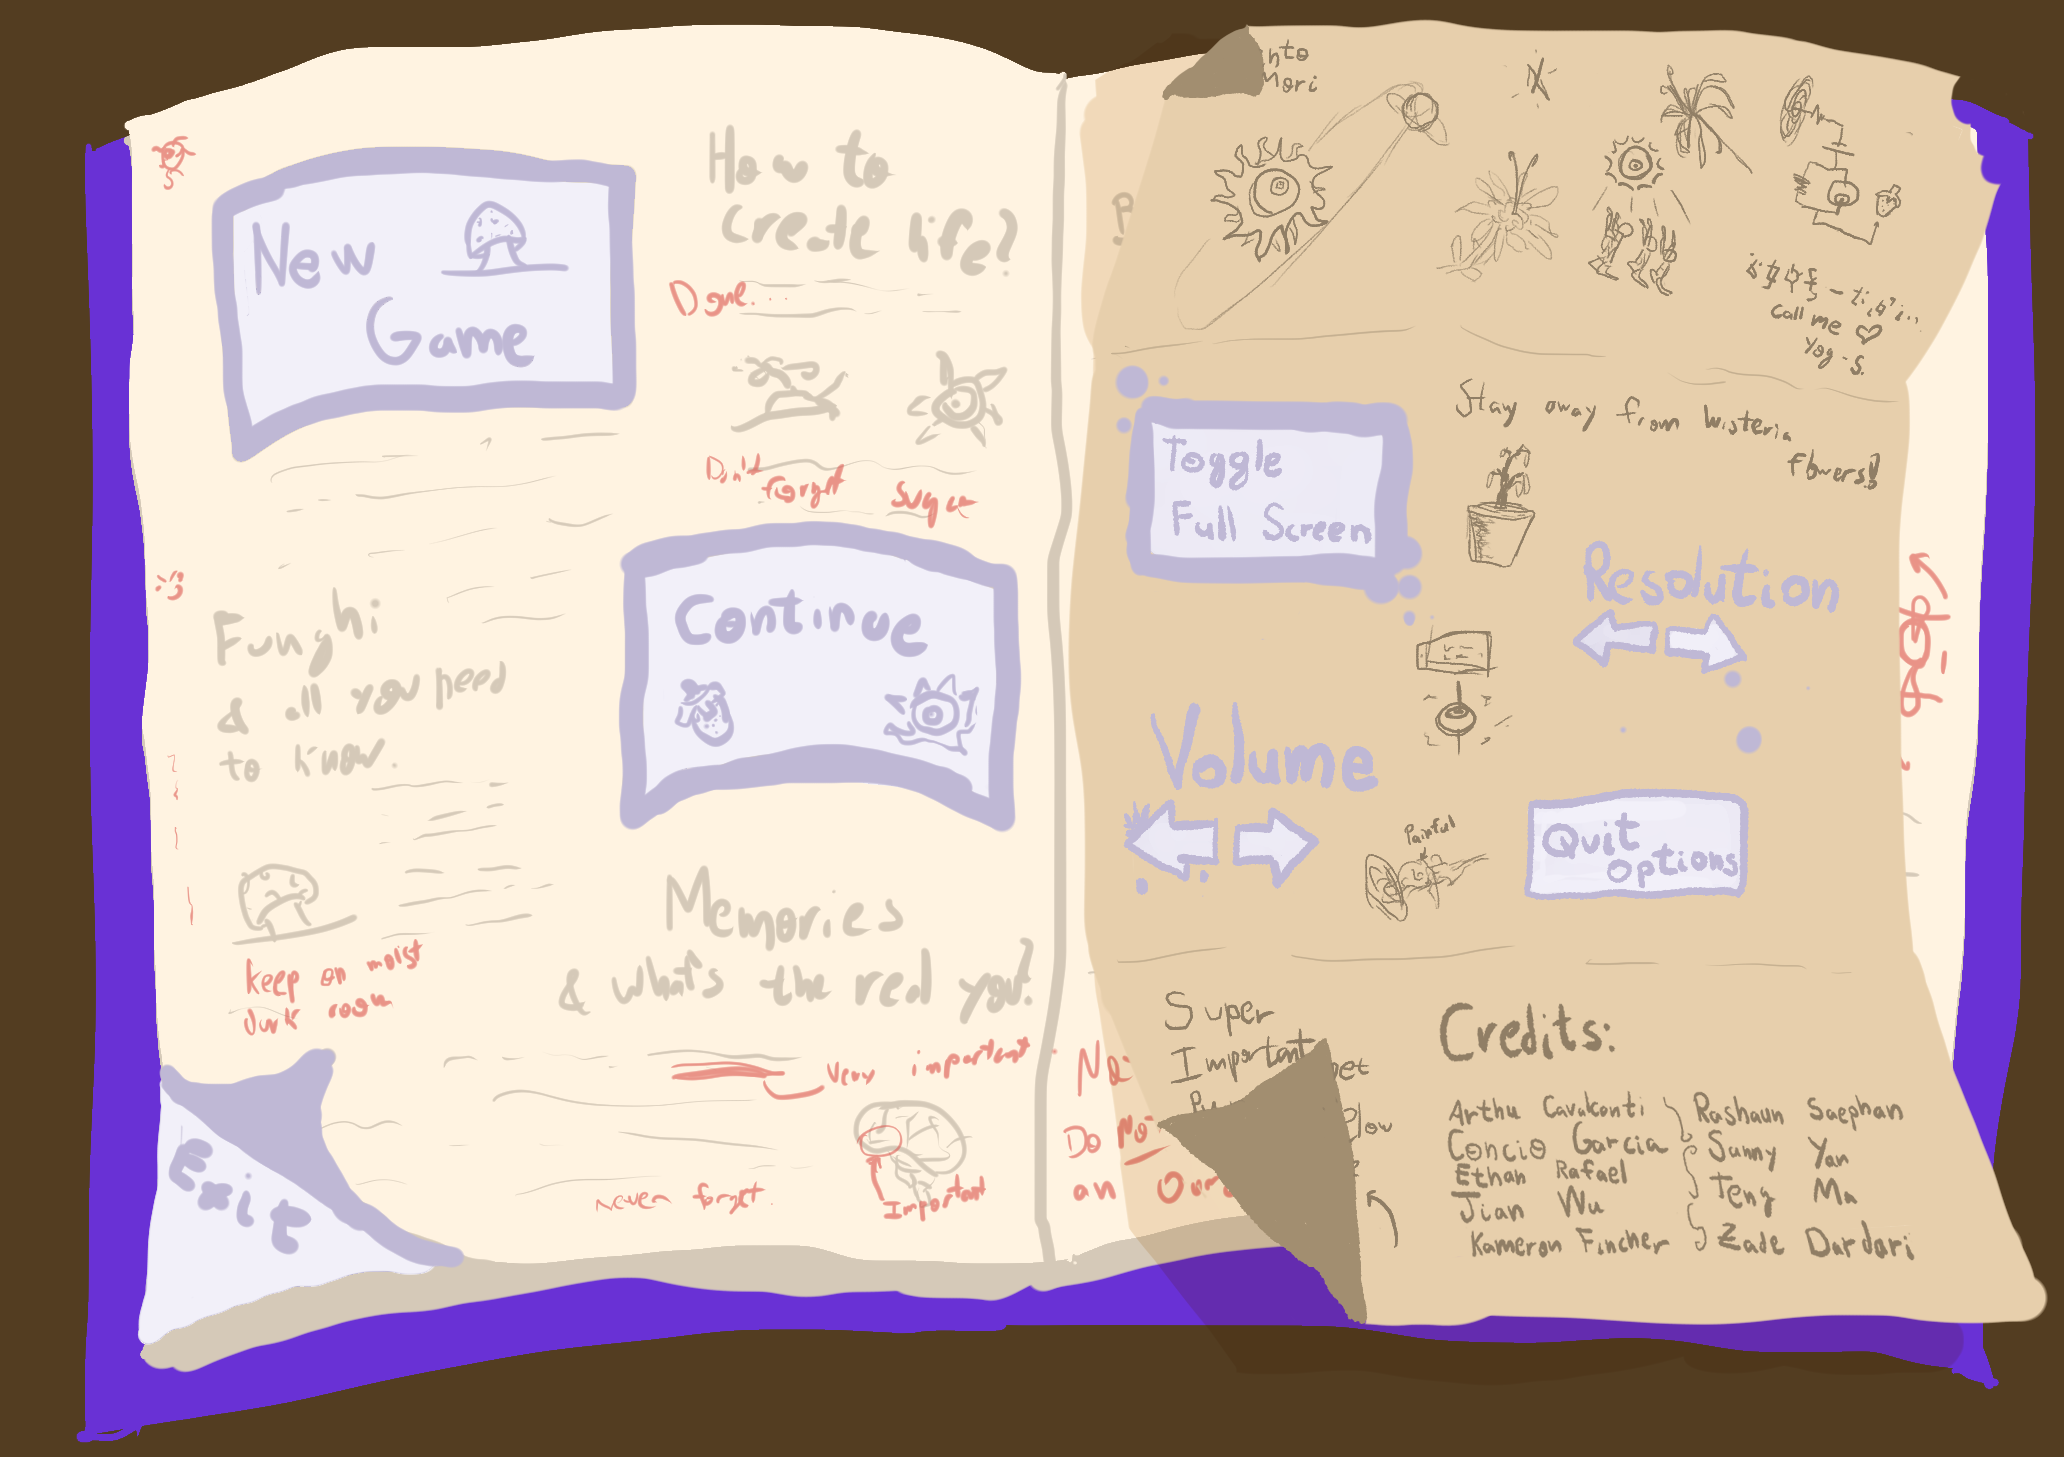 New
Game
How to
create life?
Done...
Don't
forget
sugar
Funghi
& all you need
to know.
Continue
keep on moist
dark room
Memories
& what's the real you?
Very important
Never forget
Important
Exit
Do No
an
Call me ♡
Yog-S.
Toggle
Full Screen
Stay away from Wisteria
flowers!
Resolution
Volume
Painful
Quit
Options
Super
Important
Credits:
Arthu Cavalconti
Concio Garcia
Ethan Rafael
Jian Wu
Kameron Fincher
Rashaun Saephan
Sunny Yan
Teng Ma
Zade Dardari